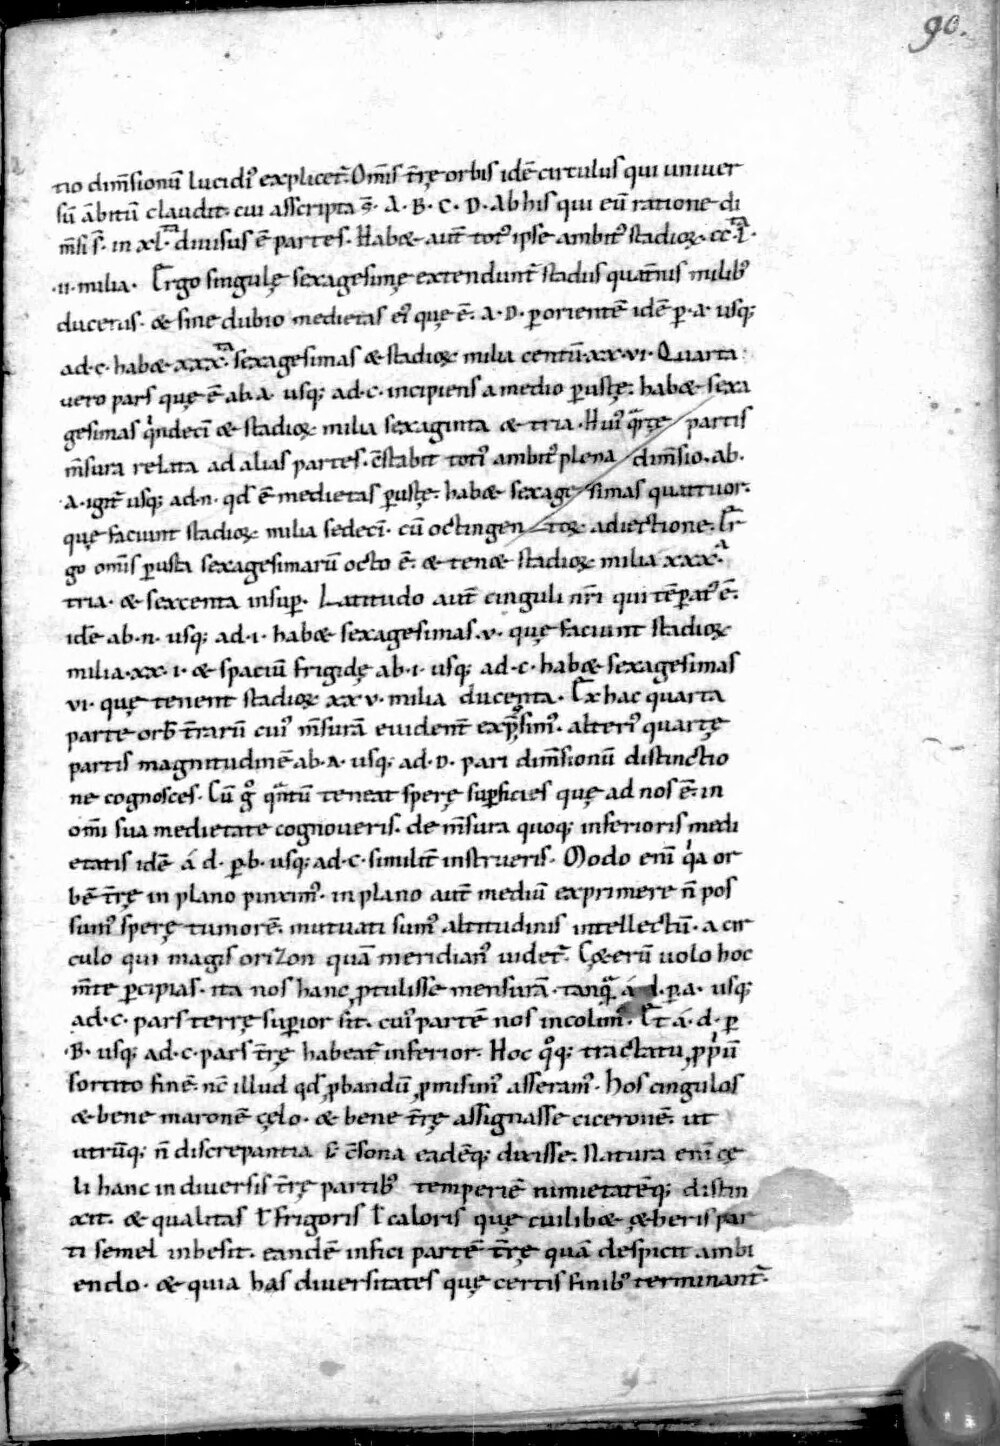 90.
tio dim̅sionū lucidiꝰ explicet̃. Om̅is t̃rę orbis idē circulus qui univer
sū ābitū claudit. cui asscripta s̅. A. B. C. D. Ab his qui eū ratione di
m̅si s̅. in xl.ta divisus ē partes. Habet aut̃ totꝰ ipse ambitꝰ stadioꝝ. cc.ta l.
.ii. milia. Ergo singulę sexagesimę extendunt̃ stadiis quat̃nis milibꝰ
ducetis. & sine dubio medietas eiꝰ que ē. A. D. ꝑ orientē idē ꝑ. a. usq;
ad. c. habet xxx.ta sexagesimas & stadioꝝ milia centū. xx. vi. Quarta
vero pars quę ē ab. a. usq; ad. c. incipiens a medio ꝑustę. habet sexa
gesimas qͥndeci̅ & stadioꝝ milia sexaginta & tria. Huiꝰ qͣrtę partis
m̅sura relata ad alias partes. c̅stabit totiꝰ ambitꝰ plena dim̅sio. ab.
.a. igit̃ usq; ad. n. qd̅ ē medietas ꝑustę. habet sexagesimas quattuor.
quę faciunt stadioꝝ milia sedeci̅. cū octingentoꝝ adiectione. Er
go om̅is ꝑusta sexagesimarū octo ē. & tenet stadioꝝ milia xxx.ta
tria. & sexcenta insuꝑ. Latitudo aut̃ cinguli nr̅i qui tēꝑatꝰ ē.
idē ab. n. usq; ad. i. habet sexagesimas. v. quę faciunt stadioꝝ
milia. xx. i. & spaciū frigidę ab. i. usq; ad. c. habet sexagesimas
vi. quę tenent stadioꝝ xxv. milia ducenta. Ex hac quarta
parte orb̅ t̃rarū cuiꝰ m̅surā evident̃ exp̃ssimꝰ. alteriꝰ quartę
partis magnitudinē ab. A. usq; ad. D. pari dim̅sionū distinctio
ne cognosces. Cū gͦ qͣntū teneat sperę suꝑficies quę ad nos ē. in
om̅i sua medietate cognoveris. de m̅sura quoq; inferioris medi
etatis idē á d. ꝑ b. usq; ad. c. similit̃ instrueris. Modo eni̅ qͥa or
bē t̃rę in plano pinximꝰ. in plano aut̃ mediū exprimere n̅ pos
sumꝰ sperę tumorē. mutuati sumꝰ altitudinis intellectū. a cir
culo qui magis orizon quā meridianꝰ videt̃. Ceterū volo hoc
m̅te ꝑcipias. ita nos hanc ꝓtulisse mensurā. tanqͣ á d. ꝑ. a. usq;
ad. c. pars terrę suꝑior sit. cuiꝰ partē nos incolim̅. Et á. d. ꝑ
.B. usq; ad. c. pars t̃rę habeat̃ inferior. Hoc qͦq; tractatu ꝓpͥū
sortito finē. nc̅ illud qd̅ ꝓbandū ꝓmisimꝰ asseramꝰ. Hos cingulos
& bene maronē cęlo. & bene t̃rę assignasse ciceronē. ut
utrūq; n̅ discrepantia s; c̅sona eadēq; dixisse. Natura eni̅ cę
li hanc in diversis t̃rę partibꝰ temperiē nimietatēq; distin
xit. & qualitas l̅ frigoris l̅ caloris quę cuilibet ętheris par
ti semel inhesit. eandē infici partē t̃rę quā despicit ambi
endo. & quia has diversitates quę certis finibꝰ terminant̃.